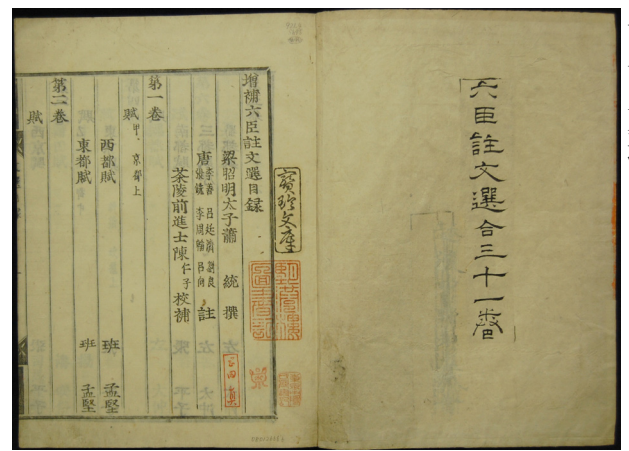 六臣註文選合三十一卷
寶珍文庫
增補六臣註文選目錄
梁昭明太子蕭 統 撰
唐 李善 呂延濟 劉良 張銑 李周翰 呂向 註
茶陵前進士陳仁子校補
第一卷
賦甲 京都上
西都賦 班孟堅
東都賦 班孟堅
第二卷
賦